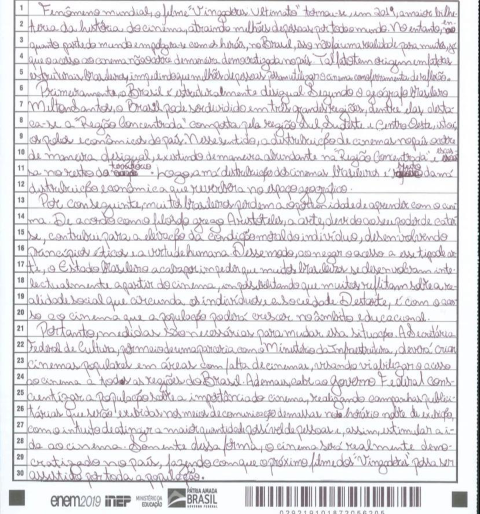 1 Fenômeno mundial, o filme "Vingadores Ultimato" tornou-se, em 2019, a maior bilhe-
2 teria da história do cinema, atraindo milhões de pessoas por todo mundo. No entanto, em
3 quanto parte do mundo emprega esse comportamento, no Brasil, isso não é uma realidade para muitos, já
4 que o acesso ao cinema não ocorre de maneira democratizada no país. Tal fato tem origem em fatores
5 estruturais brasileiros, impedindo que milhões de pessoas utilizem o cinema como ferramenta de reflexão.
6 Primeiramente, o Brasil é estruturalmente desigual. Segundo o geógrafo brasileiro
7 Milton Santos, o Brasil pode ser dividido em três grandes regiões, dentre elas, desta-
8 ca-se a "Região Concentrada" composta pela região Sul, Sudeste e Centro-Oeste,
9 os polos econômicos do país. Nesse sentido, a distribuição de cinemas no país ocorre
10 de maneira desigual, existindo de maneira abundante na "Região Concentrada" e escas-
11 sa no resto do território. Logo, a má distribuição dos cinemas brasileiros é fruto da má
12 distribuição econômica que reverbera no espaço geográfico.
13 Por conseguinte, muitos brasileiros perdem a oportunidade de aprender com o cine-
14 ma. De acordo com o filósofo grego Aristóteles, a arte, devido ao seu poder de catar-
15 se, contribui para a elevação da condição moral do indivíduo, desenvolvendo
16 princípios éticos e a virtude humana. Desse modo, ao negar o acesso a esse tipo de ar-
17 te, o Estado brasileiro acaba por impedir que muitos brasileiros se desenvolvam inte-
18 lectualmente a partir do cinema, impossibilitando que muitos reflitam sobre a re-
19 alidade social que circunda os indivíduos e a sociedade. Destarte, é com o aces-
20 so ao cinema que a população poderá crescer no âmbito educacional.
21 Portanto, medidas são necessárias para mudar essa situação. A Secretaria
22 Federal de Cultura, por meio de uma parceria com o Ministério da Infraestrutura, deverá criar
23 cinemas populares em áreas com falta de cinemas, visando viabilizar o acesso
24 ao cinema à todas as regiões do Brasil. Ademais, cabe ao Governo Federal cons-
25 cientizar a população sobre a importância do cinema, realizando campanhas publici-
26 tárias que serão exibidas nos meios de comunicação de massa no horário nobre de
27 com o intuito de atingir a maior quantidade possível de pessoas e, assim, estimular a i-
28 da ao cinema. Somente dessa forma, o cinema será realmente demo-
29 cratizado no país, fazendo com que o próximo filme dos "Vingadores" possa ser
30 assistido por toda a população.
enem2019 INEP MINISTÉRIO DA EDUCAÇÃO PÁTRIA AMADA BRASIL GOVERNO FEDERAL